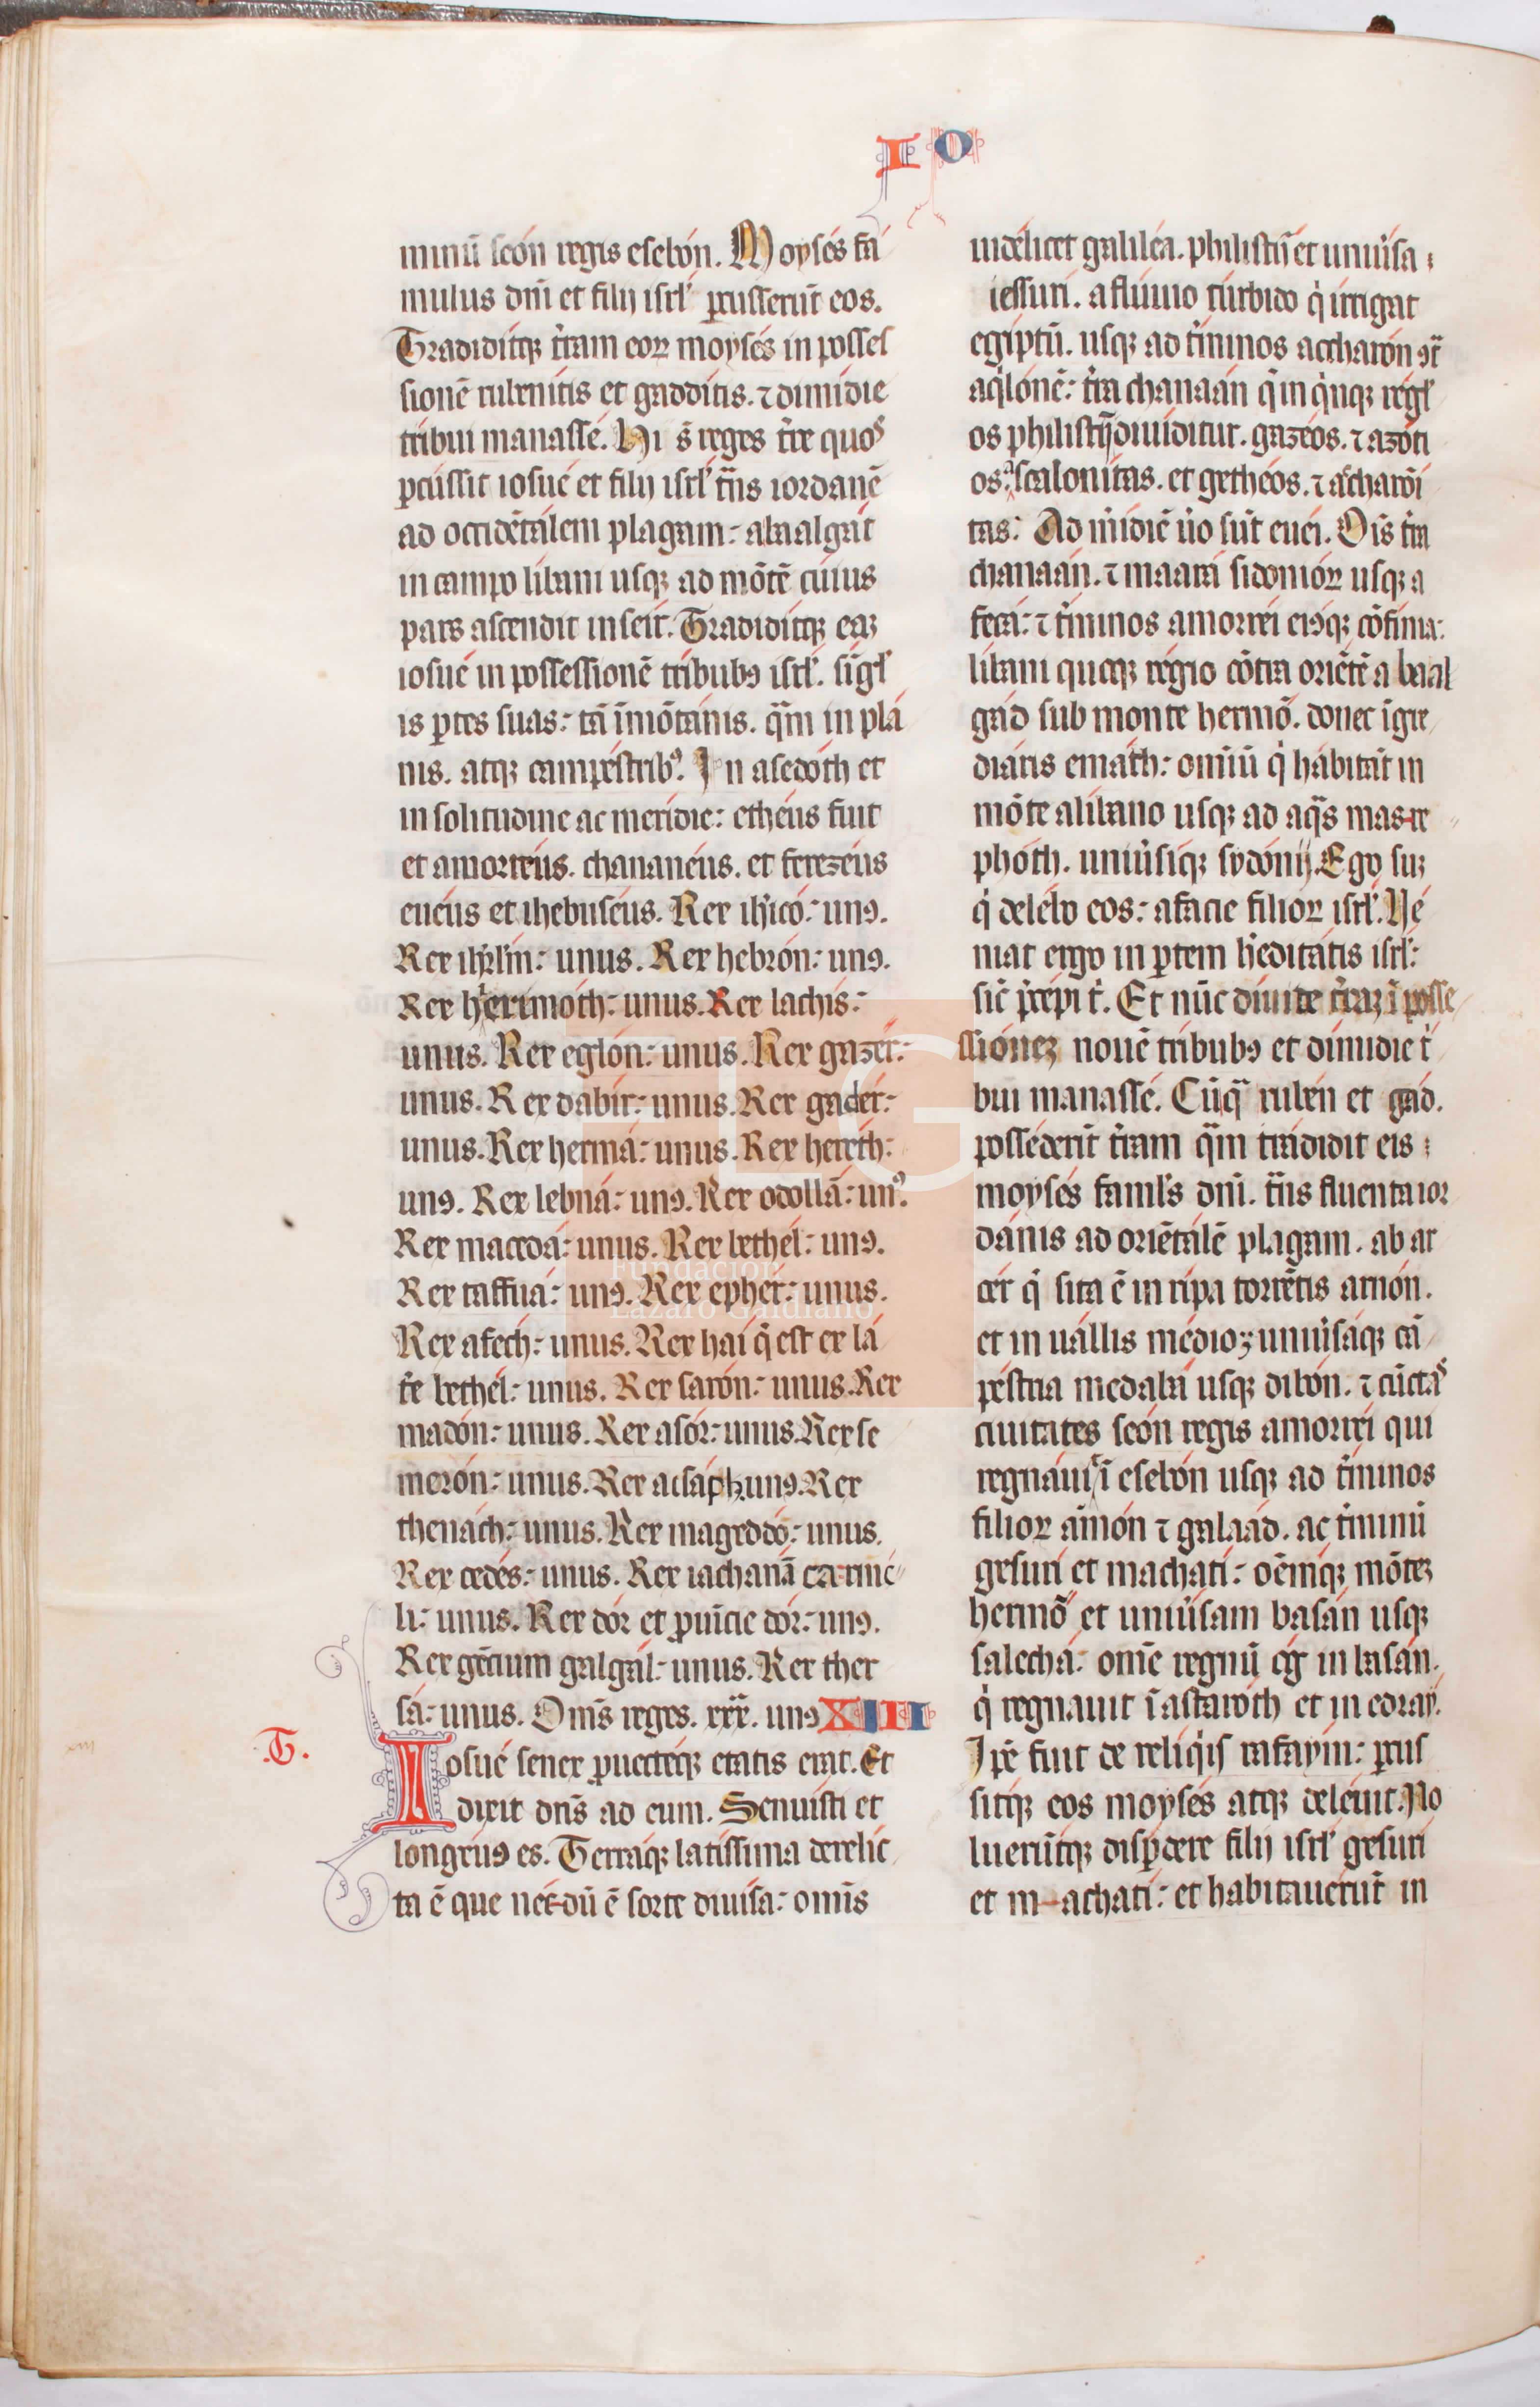 I O
minū seón regis esebón. Moysés fá
mulus dn̄i et filij isrl̓ ꝑcusserūt eos.
Tradiditqꝫ t̓ram eoꝝ moysés in posses
sionē rubenitis et gaddítis. ⁊ dimidie
tribui manasse. Hi s̄t reges t̓re quoˢ
ꝑcussit iosué et filij isrl̓ t̄ns iordanē
ad occidētálem plagam: abaalgát
in campo libani usqꝫ ad mōtē cúius
pars ascendit in seir. Tradiditqꝫ eaꝫ
iosué in possessionē tribubꝰ isrl̓. sīgl̓
is ꝑtes suas: tā ī mōtánis. q̄m in plá
nis. atqꝫ campéstribꝰ. In asedóth et
in solitudine ac merídie: ethéus fuit
et amorréus. chananéus. et ferezéus
euéus et ihebuséus. Rex ih̓icó: unꝰ.
Rex ihꝛl̓m: unus. Rex hebrón: unꝰ.
Rex hierimóth: unus. Rex lachís:
unus. Rex eglón: unus. Rex gazér:
unus. Rex dabír: unus. Rex gadér:
unus. Rex hermá: unus. Rex heréth:
unꝰ. Rex lebná: unꝰ. Rex odollā: unꝰ.
Rex macedá: unus. Rex bethél: unꝰ.
Rex taffuá: unꝰ. Rex ephér: unus.
Rex aféch: unus. Rex hai q̓ est ex lá
t̓e bethél: unus. Rex sarón: unus. Rex
madón: unus. Rex asór: unus. Rex se
merón: unus. Rex acsáph: unꝰ. Rex
thenách: unus. Rex mageddó: unus.
Rex cedés: unus. Rex iachanā carmé
li: unus. Rex dór et ꝓuīcie dór: unꝰ.
Rex gēcium galgál: unus. Rex ther
sá: unus. Om̄s reges. xxx. unꝰ XIII
.T.
Iosué senex ꝓuecteqꝫ etatis erat. Et
dixit dn̄s ad eum. Senuísti et
longéuꝰ es. Terráqꝫ latíssima derelic
ta ē que necdū ē sorte diuísa: omīs
uidélicet galiléa. philistij̄ et uniu̓sa
iessuri. a flúuio túrbido q̓ írrigat
egiptū. usqꝫ ad t̓minos accharón ꝯt̄
aq̓lonē: t̓ra chanaán q̄ in q̓nqꝫ régl̓
os philistij̄ diuíditur. gazéos. ⁊ azóti
os. ascalonítas. et gethéos. ⁊ accharōi
tas: Ad m̓idiē u̓o sūt euéi. Oīs t̓ra
chanaán. ⁊ maará sidonióꝝ usqꝫ a
fecá: ⁊ t̓minos amorréi eiꝰqꝫ cōfinia:
líbani queqꝫ régio cōtra oriētē a baal
gád sub monte hermō. donec īgre
diáris emáth: omiū q̓ hábitāt in
mōte a líbano usqꝫ ad aq̄s masre
phóth. uniu̓síqꝫ sydónij. Ego suꝫ
q̓ deléb eos: a facie filioꝝ isrl̓. Vé
niat ergo in ꝑtem h̓editátis isrl̓:
sic̄ p̓cépi t̓. Et nūc diuide t̓raꝫ ī posse
ssióneꝫ nouē tribubꝰ et dimidie t̓
bui manassé. Cū q̄ rubén et gád.
posséderūt t̓ram q̄m trádidit eis
moysés faml̓s dn̄i. t̄ns fluenta ior
dánis ad oriētálē plagam. ab ar
oér q̓ sita ē in ripa torrētis arnón.
et in uállis médio; uniu̓sáqꝫ cā
péstria medabá usqꝫ dibón. ⁊ cūctaˢ
ciuitates seón regis amorréi qui
regnáuit ī esebón usqꝫ ad t̓minos
filioꝝ ámón ⁊ galaád. ac t̓minū
gesuri et macháti: oēmqꝫ mōteꝫ
hermō et uniu̓sam basán usqꝫ
salechá: omē regnū óg in basán.
q̓ regnauit ī astaróth et in edray.
Ip̄e fuit de relíq̓js rafaym: ꝑcus
sitqꝫ eos moysés atqꝫ deléuit. No
luerūtqꝫ disꝑdere filij isrl̓ gesuri
et machati: et habitauérūt in
Fundación
Lázaro Galdiano